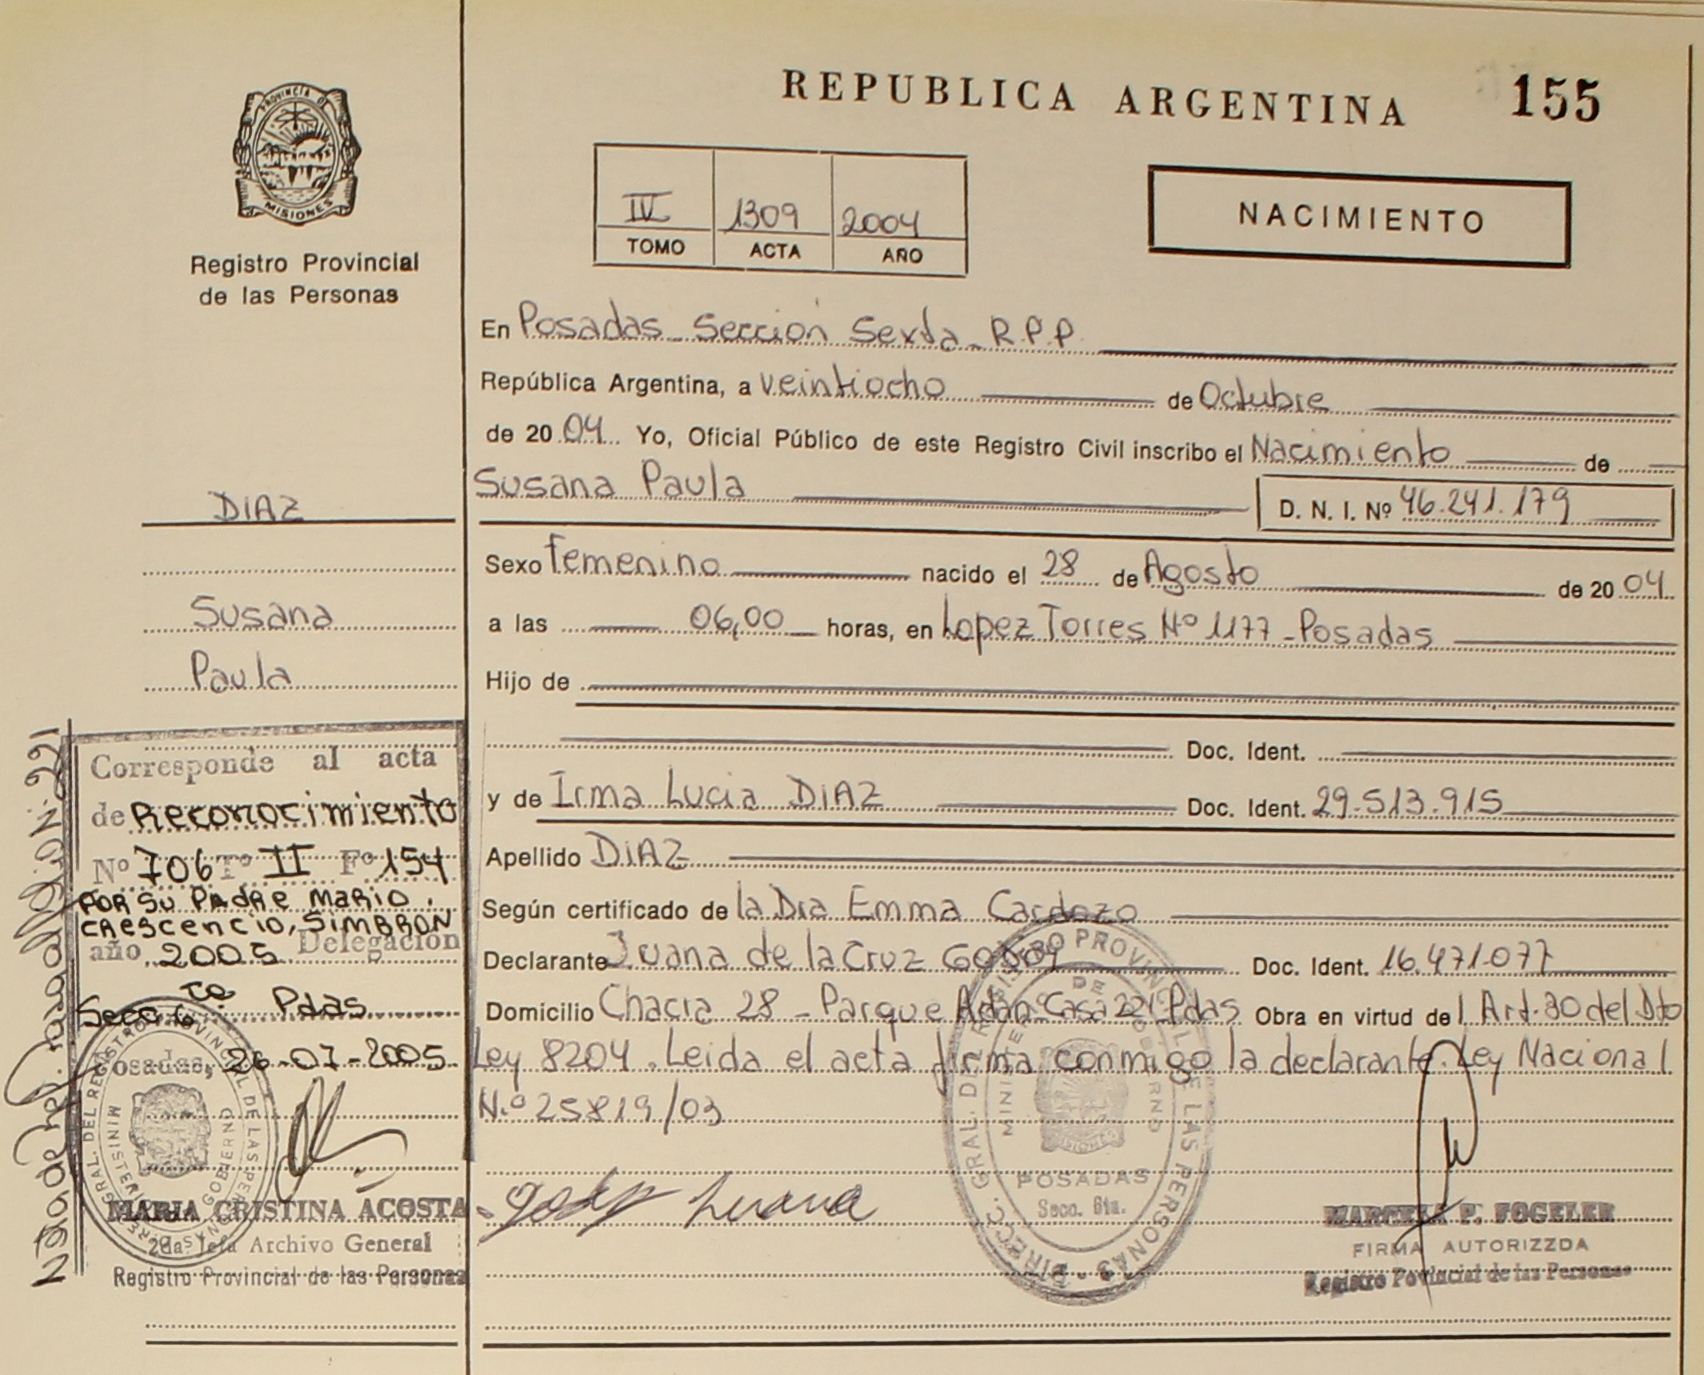 REPUBLICA ARGENTINA 155
PROVINCIA DE
MISIONES
Registro Provincial
de las Personas
IV 1309 2004
TOMO ACTA AÑO
NACIMIENTO
En Posadas - Sección Sexta - R.P.P.
República Argentina, a veintiocho de Octubre
de 2004 Yo, Oficial Público de este Registro Civil inscribo el Nacimiento de
Susana Paula
D. N. I. Nº 46.241.179
Sexo femenino nacido el 28 de Agosto de 2004
a las 06,00 horas, en Lopez Torres Nº 1177 - Posadas
Hijo de
Doc. Ident.
y de Irma Lucia DIAZ Doc. Ident. 29.513.915
Apellido DIAZ
Según certificado de la Dra Emma Cardozo
Declarante Juana de la Cruz Godoy Doc. Ident. 16.471.077
Domicilio Chacra 28 - Parque Adan Casa 221 Pdas Obra en virtud del Art. 30 del Dto
Ley 8204. Leida el acta firma conmigo la declarante. Ley Nacional
N.º 25819/03
DIAZ
Susana
Paula
Corresponde al acta
de Reconocimiento
Nº 706 Tº II Fº 154
POR SU PADRE MARIO
CRESCENCIO, SIMBRON
año 2005 Delegación
Secc 6 ta Pdas
Posadas, 26-07-2005
MARIA CRISTINA ACOSTA
2da. Jefa Archivo General
Registro Provincial de las Personas
DIRECC. GRAL. DEL REGISTRO PROVINCIAL DE LAS PERSONAS
MINISTERIO DE GOBIERNO
MISIONES
POSADAS
Secc. 6ta.
Godoy Juana
MARCELA P. FOGELER
FIRMA AUTORIZZDA
Registro Povincial de las Personas